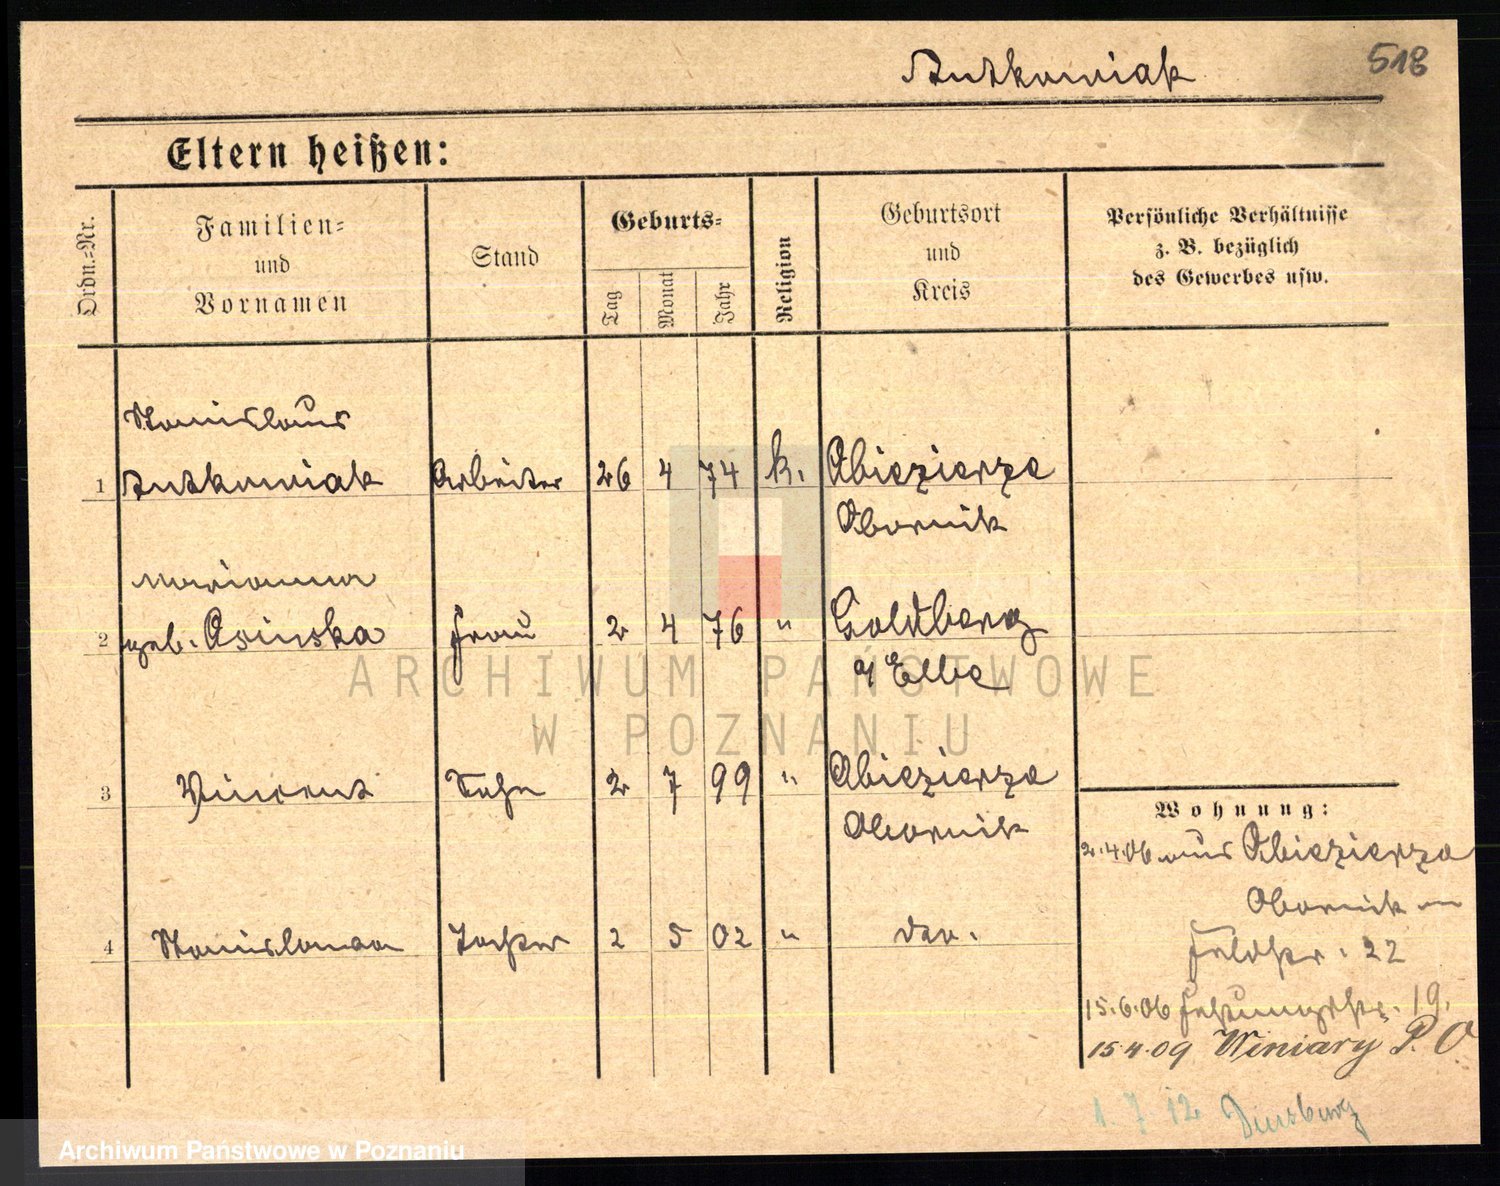 Antkowiak
518
Eltern heißen:
Ordn.-Nr.
Familien-
und
Vornamen
Stand
Geburts-
Tag
Monat
Jahr
Religion
Geburtsort
und
Kreis
Persönliche Verhältnisse
z. B. bezüglich
des Gewerbes usw.
Stanislaus
1 Antkowiak Arbeiter 26 4 74 k. Obiezierze
Obornik
Marianna
2 geb. Frau 2 4 76 " Goldberg
a/ Elbe
3 Vincent Sohn 2 7 99 " Obiezierze
Obornik
4 Stanislawa Tochter 2 5 02 "
Wohnung:
2.4.06 aus Obiezierze
Obornik
Feldstr. 22
15.6.06 Festungsstr. 19.
15.4.09 Winiary P. O
1. 7 12 Duisburg
ARCHIWUM PAŃSTWOWE
W POZNANIU
Archiwum Państwowe w Poznaniu